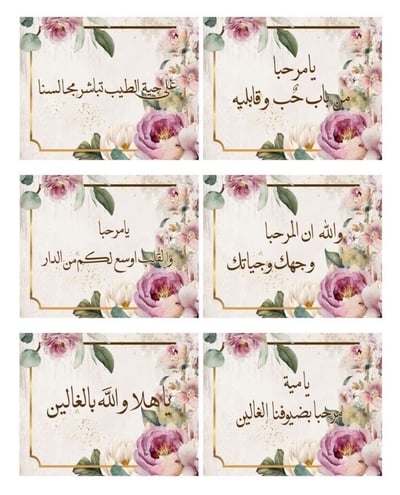 يامرحبا
من باب حُب وقابليه
على جية الطيب تباشر مجالسنا
والله ان المرحبا
وجهك وجياتك
يامرحبا
والقلب اوسع لكم من الدار
يامية
مرحبا بضيوفنا الغالين
ياهلا والله بالغالين